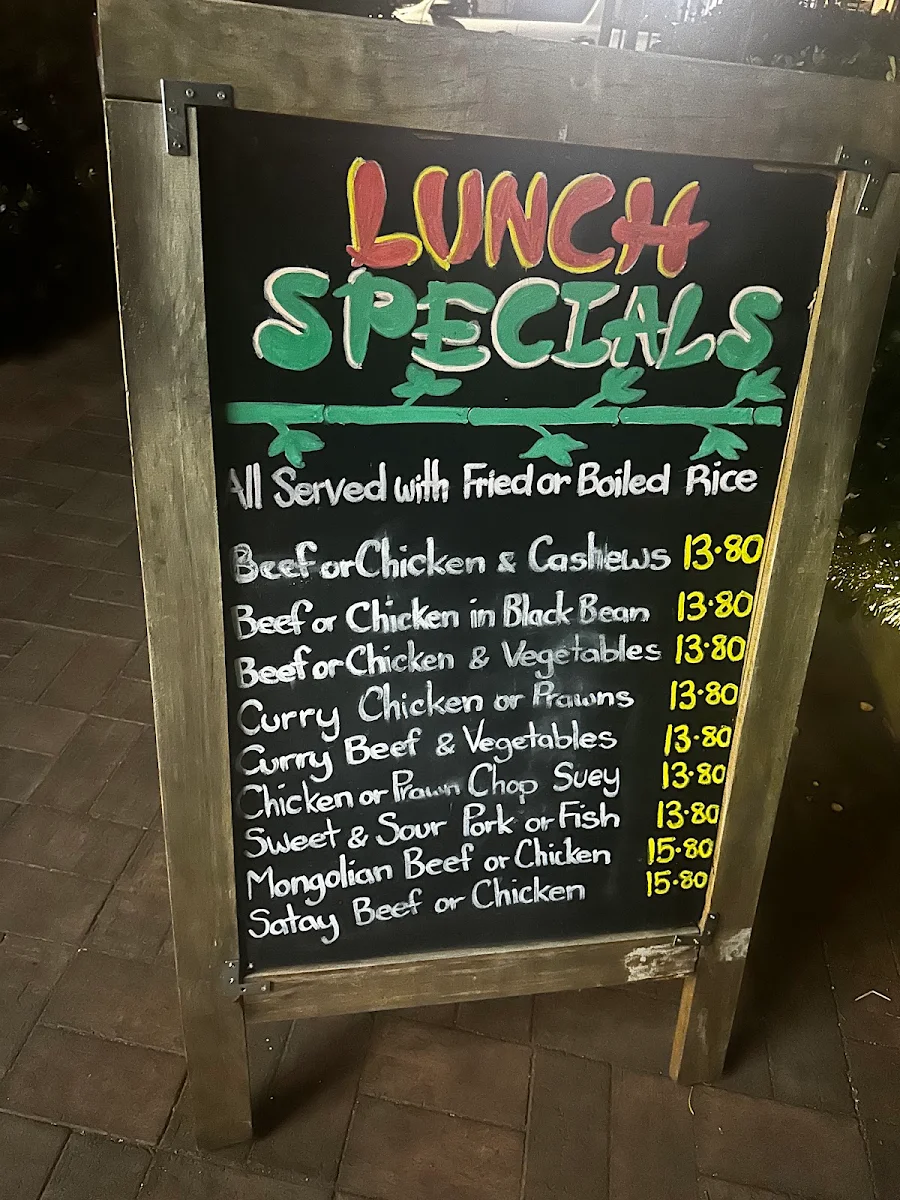 LUNCH
SPECIALS
All Served with Fried or Boiled Rice
Beef or Chicken & Cashews 13.80
Beef or Chicken in Black Bean 13.80
Beef or Chicken & Vegetables 13.80
Curry Chicken or Prawns 13.80
Curry Beef & Vegetables 13.80
Chicken or Prawn Chop Suey 13.80
Sweet & Sour Pork or Fish 13.80
Mongolian Beef or Chicken 15.80
Satay Beef or Chicken 15.80